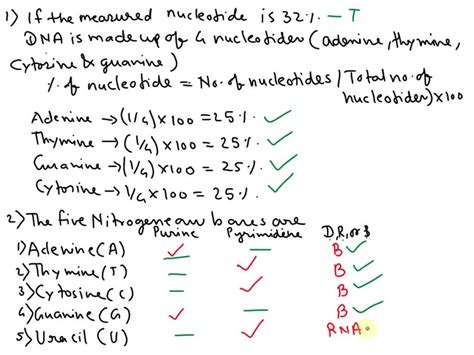 1) If the measured nucleotide is 32%. – T
DNA is made up of 4 nucleotides (adenine, thymine,
cytosine & guanine)
% of nucleotide = No. of nucleotides / Total no. of
nucleotides) x 100
Adenine → (1/4) x 100 = 25%. ✓
Thymine → (1/4) x 100 = 25%. ✓
Guanine → (1/4) x 100 = 25%. ✓
Cytosine → 1/4 x 100 = 25%. ✓
2) The five Nitrogenous bases are
Purine Pyrimidine D, R, or B
1) Adenine (A) ✓ – B ✓
2) Thymine (T) – ✓ B ✓
3) Cytosine (C) – ✓ B ✓
4) Guanine (G) ✓ – B ✓
5) Uracil (U) – ✓ RNA